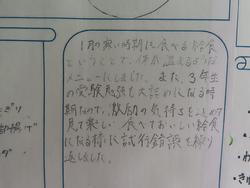 1月の寒い時期に食べる給食
ということで、体が温まるような
メニューにしました。また、3年生
の受験勉強も大詰めになる時
期なので、激励の気持ちをこめて
見て楽しい食べておいしい給食
になる様に試行錯誤を繰り
返しました。
ぎり
揚げ